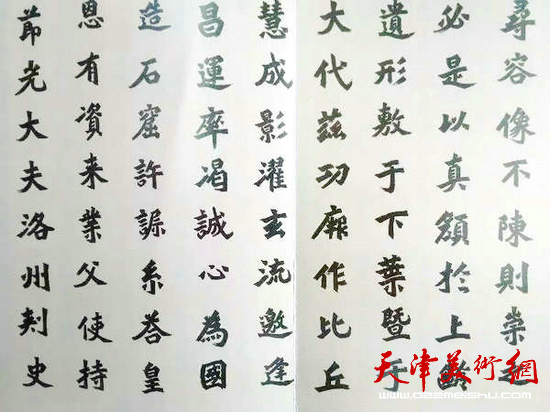 尋容像不陳則崇之
必是以真顏於上齡
遺形敷于下葉暨于
大代茲功厥作比丘
慧成影濯玄流邀逢
昌運率渴誠心為國
造石窟許系荅皇
恩有資来業父使持
節光大夫洛州刾史
天津美術網